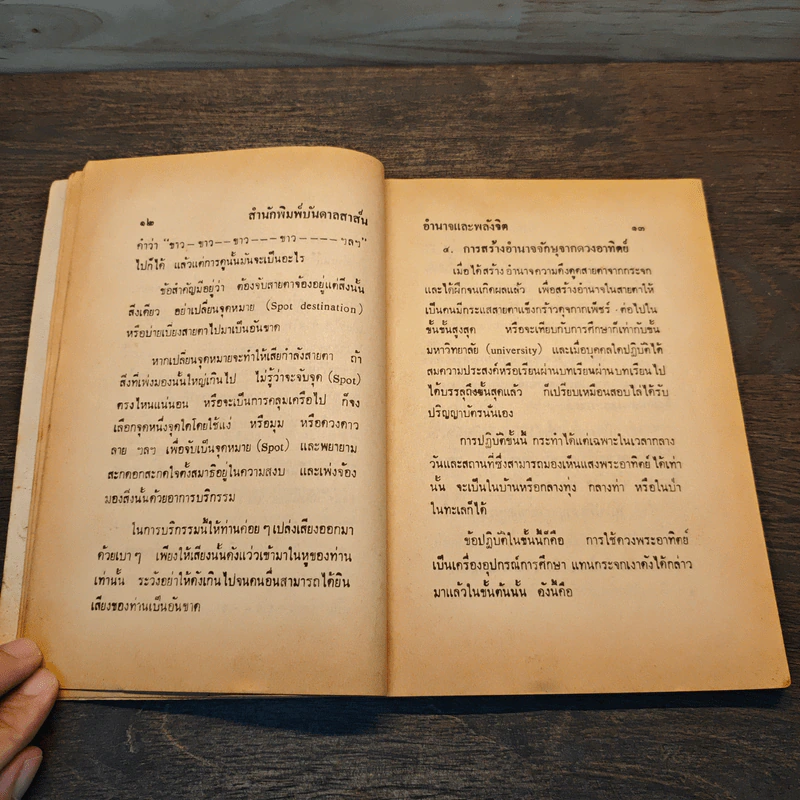 ๑๒ สำนักพิมพ์บันดาลสาส์น
คำว่า "ขาว–ขาว––ขาว–––ขาว––––ฯลฯ"
ไปก็ได้ แล้วแต่การดูนั้นมันจะเป็นอะไร
ข้อสำคัญมีอยู่ว่า ต้องจับสายตาจ้องอยู่แต่สิ่งนั้น
สิ่งเดียว อย่าเปลี่ยนจุดหมาย (Spot destination)
หรือบ่ายเบี่ยงสายตาไปมาเป็นอันขาด
หากเปลี่ยนจุดหมายจะทำให้เสียกำลังสายตา ถ้า
สิ่งที่เพ่งมองนั้นใหญ่เกินไป ไม่รู้ว่าจะจับจุด (Spot)
ตรงไหนแน่นอน หรือจะเป็นการคลุมเครือไป ก็จง
เลือกจุดหนึ่งจุดใดโดยใช้แง่ หรือมุม หรือดวงดาว
ลาย ฯลฯ เพื่อจับเป็นจุดหมาย (Spot) และพยายาม
สะกดอกสะกดใจตั้งสมาธิอยู่ในความสงบ และเพ่งจ้อง
มองสิ่งนั้นด้วยอาการบริกรรม
ในการบริกรรมนี้ให้ท่านค่อย ๆ เปล่งเสียงออกมา
ด้วยเบา ๆ เพียงให้เสียงนั้นดังแว่วเข้ามาในหูของท่าน
เท่านั้น ระวังอย่าให้ดังเกินไปจนคนอื่นสามารถได้ยิน
เสียงของท่านเป็นอันขาด
อำนาจและพลังจิต ๑๓
๔. การสร้างอำนาจจักษุจากดวงอาทิตย์
เมื่อได้สร้างอำนาจความดึงดูดสายตาจากกระจก
และได้ฝึกจนเกิดผลแล้ว เพื่อสร้างอำนาจในสายตาให้
เป็นคนมีกระแสสายตาแข็งกร้าวดุจกากเพ็ชร์ ต่อไปใน
ขั้นชั้นสูงสุด หรือจะเทียบกับการศึกษาก็เท่ากับชั้น
มหาวิทยาลัย (university) และเมื่อบุคคลใดปฏิบัติได้
สมความประสงค์หรือเรียนผ่านบทเรียนผ่านบทเรียนไป
ได้บรรลุถึงขั้นสุดแล้ว ก็เปรียบเหมือนสอบไล่ได้รับ
ปริญญาบัตรนั่นเอง
การปฏิบัติชั้นนี้ กระทำได้แต่เฉพาะในเวลากลาง
วันและสถานที่ซึ่งสามารถมองเห็นแสงพระอาทิตย์ได้เท่า
นั้น จะเป็นในบ้านหรือกลางทุ่ง กลางท่า หรือในป่า
ในทะเลก็ได้
ข้อปฏิบัติในชั้นนี้ก็คือ การใช้ดวงพระอาทิตย์
เป็นเครื่องอุปกรณ์การศึกษา แทนกระจกเงาดังได้กล่าว
มาแล้วในขั้นต้นนั้น ดังนี้คือ